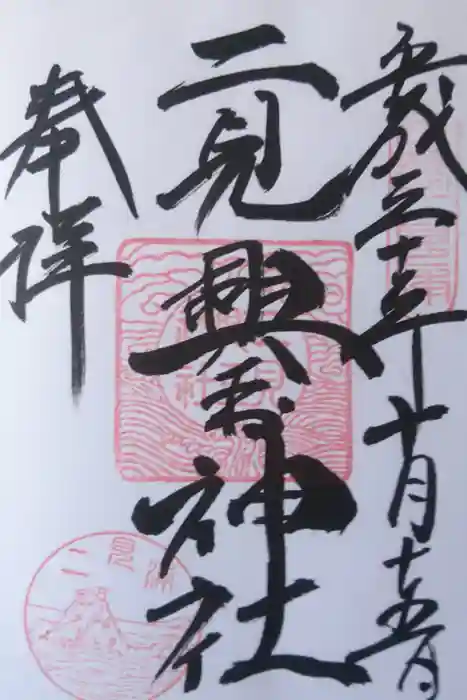 平成三十年十月十五日
二見興玉神社
奉拝
二見浦